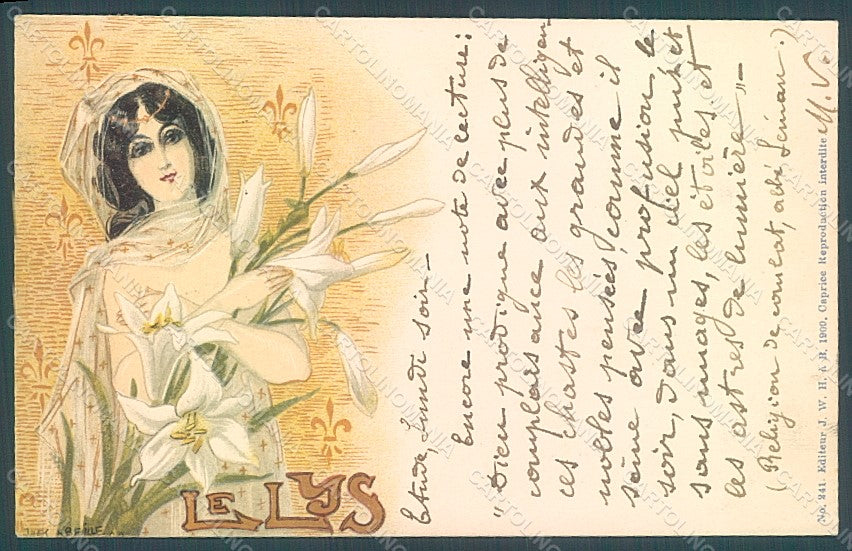 LE LYS
Etude, Lundi soir –
Encore une note de lecture :
"Dieu prodigue avec plus de
complaisance aux intelligen
ces chastes les grandes et
nobles pensées, comme il
sème avec profusion le
soir, dans un ciel pur et
sans nuages, les étoiles et
les astres de lumière" –
(Religion de combat, abé Séman.)
M. V.
No. 241. Editeur J. W. H. à B. 1900. Caprice Reproduction interdite
CARTOLINOMANIA